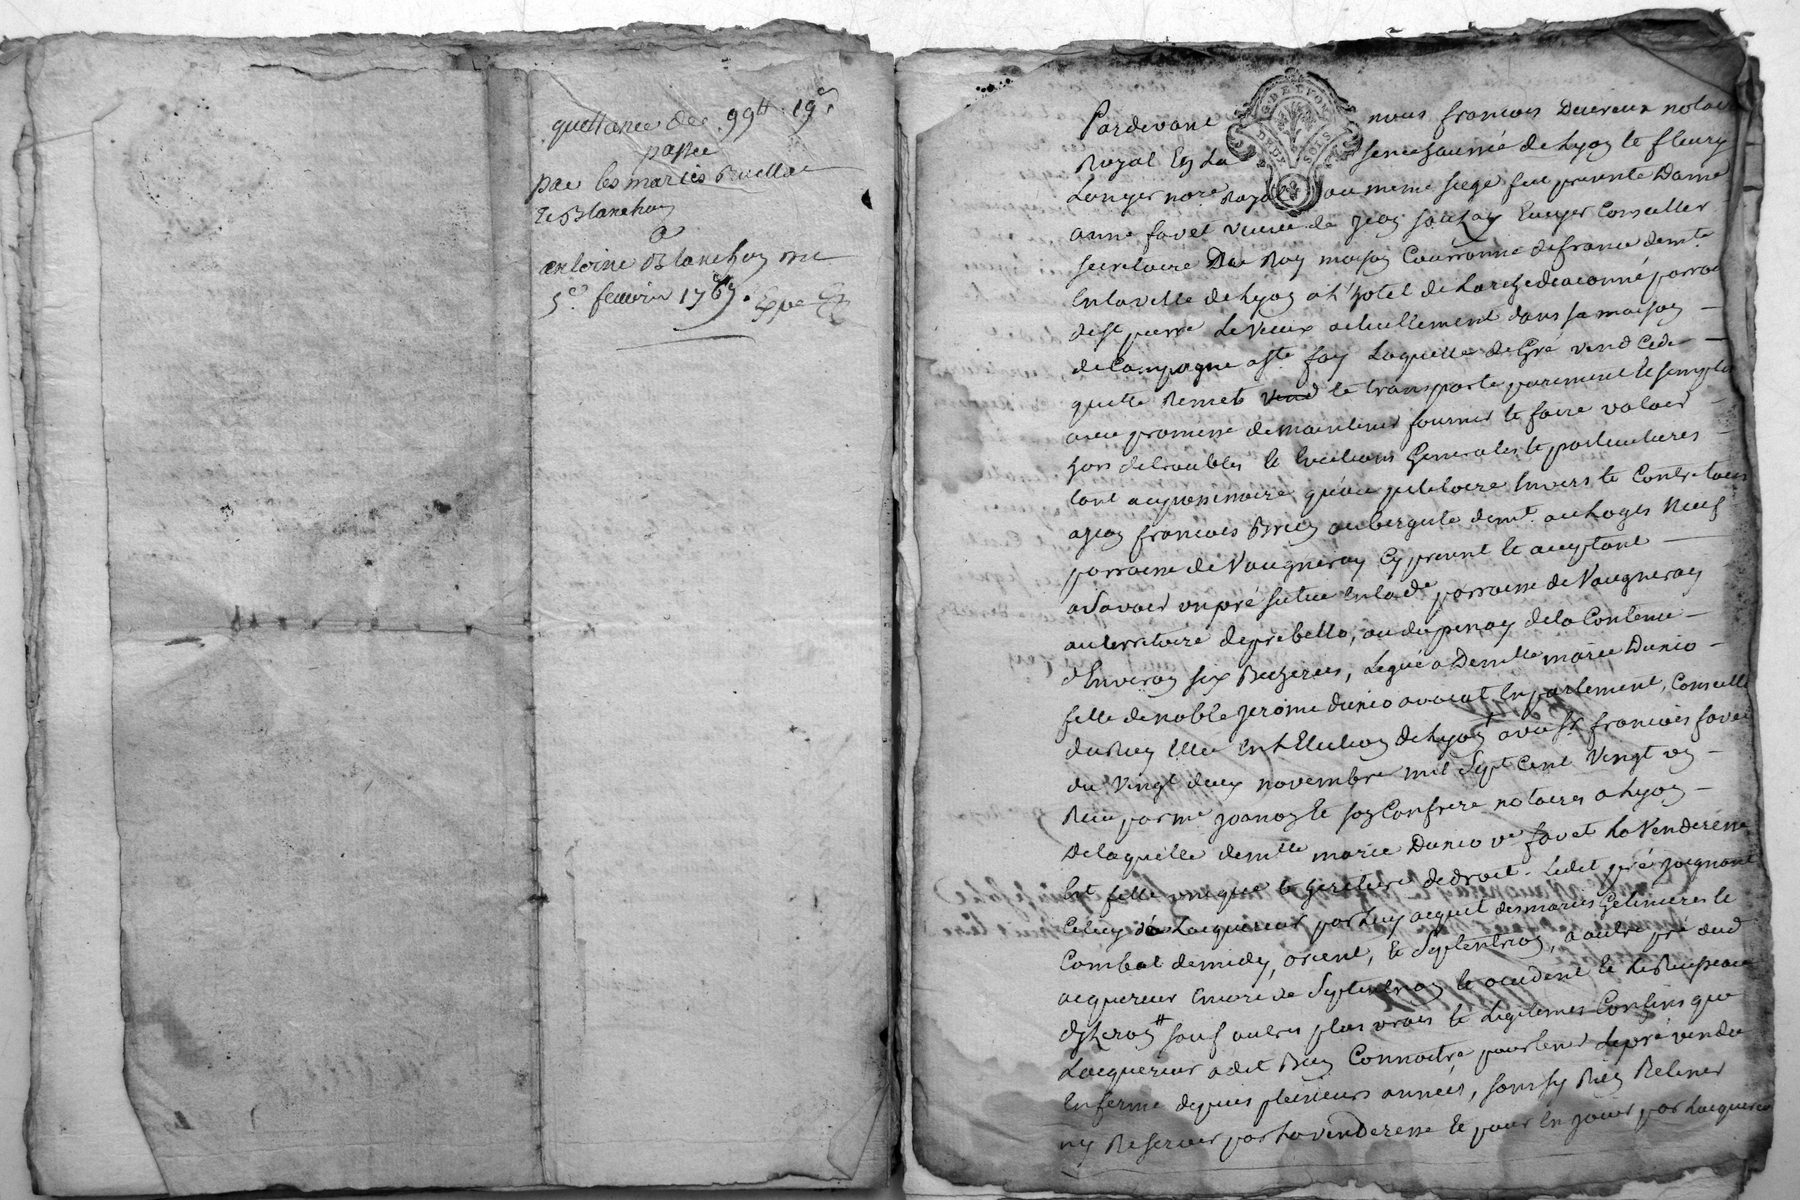 quittance de 99tt 19s
passée
par les mariés Pruella
et Blanchon
a
antoine Blanchon du
5e feuvrier 1767. Exp.
G. DE LYON
DEUX SOLS
Pardevant nous francois Devereux notaire
Royal En La senechaussée de Lyon et fleury
Langer nore Royal au meme siege fut presente Dame
anne favet veuve de Jean souchay Ecuyer Conseiller
secretaire Du Roy maison Couronne de france demte
En la ville de Lyon a l'hotel de Larchediaconné parroisse
de st pierre Le vieux actuellement dans sa maison
de Campagne a ste foy Laquelle de Gré vend Cede
quitte Remet vend et transporte purement et simplement
avec promesse de maintenir fournir et faire valoir
hors de troubles et Evictions Generales et particulieres
tant au possessoire qu'au petitoire Envers et Contre tous
a Jean francois Brun aubergiste demt. au Logis Neuf
parroisse de Vaugneray Cy present et acceptant
a Savoir un pré situé En lad. parroisse de Vaugneray
au territoire de prebello, ou du penay de la Contenue
d'Environ six Bicherées, Legué a Demlle marie Dunio
fille de noble Jerome Dunio avocat En parlement, Conseiller
du Roy Elu En L'Election de Lyon a vec sr. francois favet
du Vingt deux novembre mil Sept Cent Vingt un
Reçu par me Joanon et son Confrere notaires a Lyon
De laquelle demlle marie Dunio ve favet La Venderesse
Est fille unique et heritiere de droit. Ledit pré joignant
Celuy de Lacquereur par Luy acquit des mariés Gelinieres et
Combet de midy, orient, et Septentrion, a autre pré dud
acquereur Encore de Septentrion et occident et Le Ruisseau
d'yzeron sauf autres plus vrais et Legitimes Confins que
Lacquereur a dit Bien Connoitre pour tenir Le pré vendu
En ferme depuis plusieurs années, sans sy Rien Retenir
ny Reserver par La venderesse et pour En jouir par Lacquereur